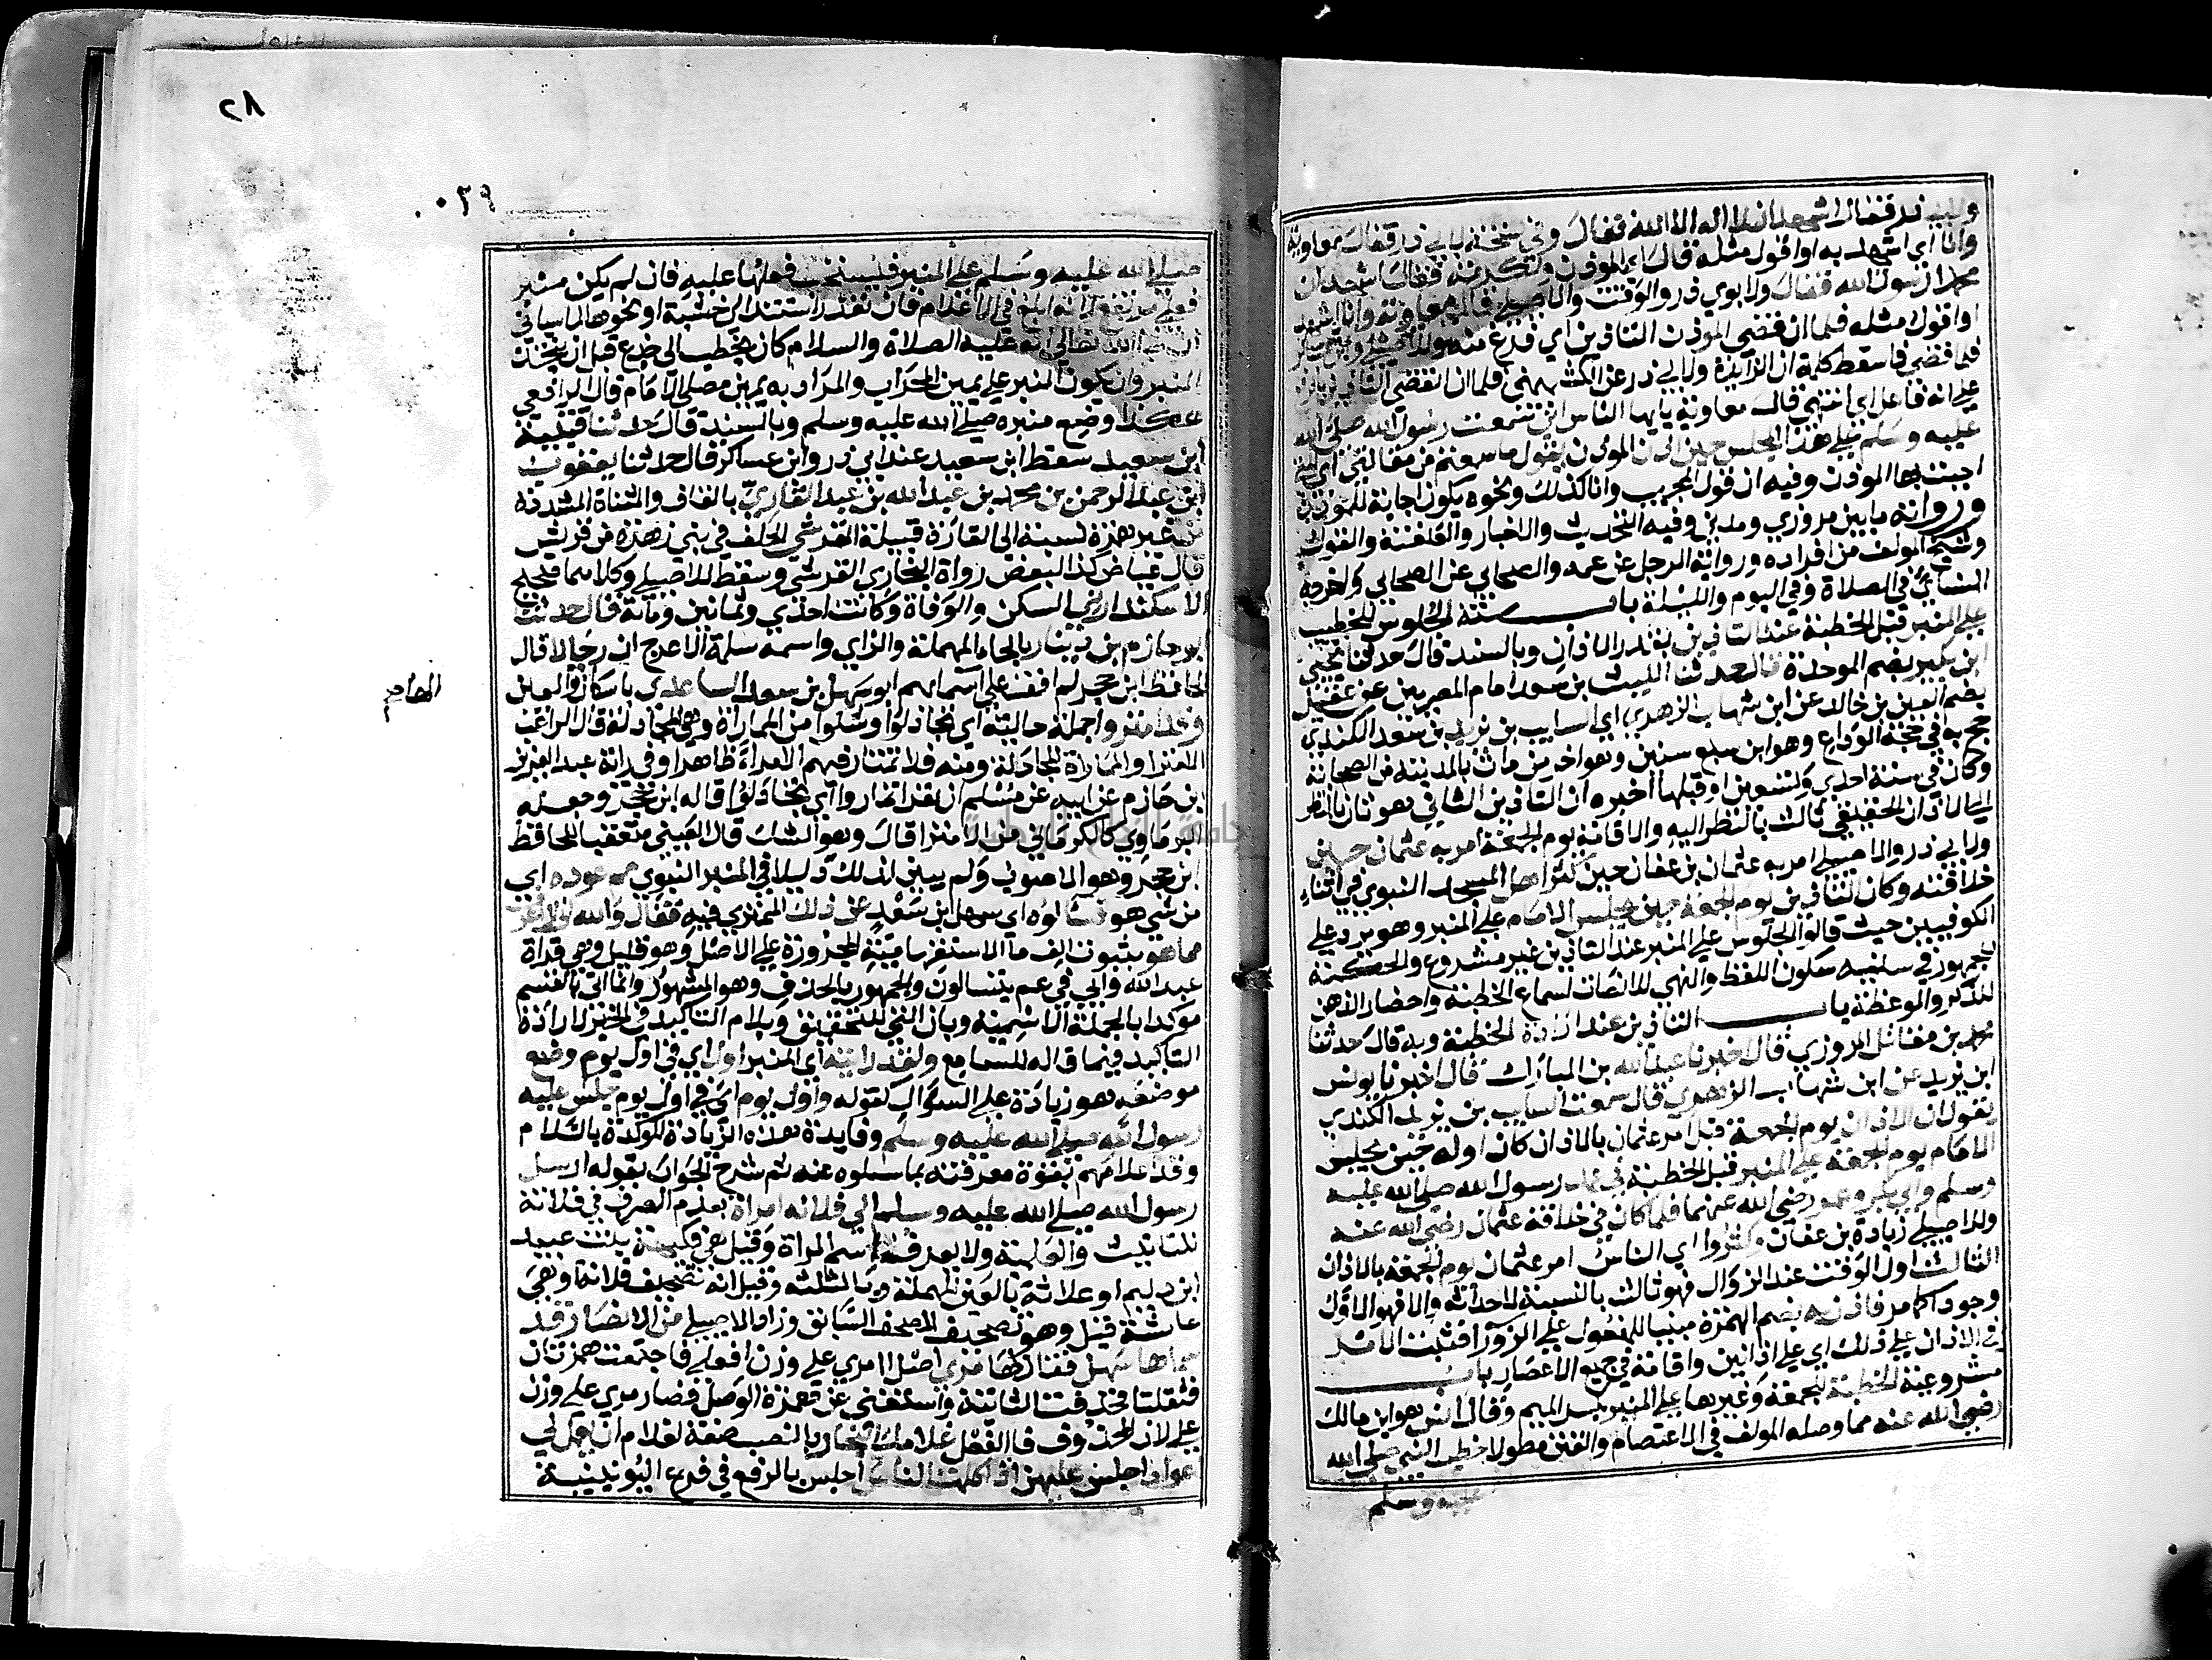 ولابي ذر فقال اشهد ان لا اله الا الله فقال وفي نسخة لابي ذر قال معاوية
وانا اي اشهد به او اقول مثله قال اي المؤذن ولكريمة فقال اشهد ان
محمدا رسول الله فقال ولابوي ذر والوقت والاصيلي قال معاوية وانا اي اشهد
او اقول مثله فلما ان قضى المؤذن التاذين اي فرغ منه وللاصيلي
فلما قضي فاسقط كلمة ان الزايدة ولابي ذر عن الكشميهني فلما ان انقضى التاذين بالرفع
على انه فاعل اي انتهى قال معاوية يايها الناس اني سمعت رسول الله صلى الله
عليه وسلم على هذا المجلس حين اذن المؤذن يقول ما سمعتم من مقالتي اي التي
اجبت بها المؤذن وفيه ان قول المجيب وانا كذلك ونحوه يكون اجابة للمؤذن
ورواته ما بين مروزي ومدني وفيه التحديث والاخبار والعنعنة والقول
وشيخ المولف من افراده ورواية الرجل عن عمه والصحابي عن الصحابي واخرجه
النسائي في الصلاة وفي اليوم والليلة باب سنة الجلوس للخطيب
على المنبر قبل الخطبة عند التاذين بقدر الاذان وبالسند قال حدثنا يحيى
ابن بكير بضم الموحدة قال حدثنا الليث بن سعد امام المصريين عن عقيل
بضم العين بن خالد عن ابن شهاب الزهري اي السايب بن يزيد بن سعد الكندي
حج به في حجة الوداع وهو ابن سبع سنين وهو اخر من مات بالمدينة من الصحابة
وكان في سنة احدى وتسعين او قبلها اخبره ان التاذين الثاني هو ثان بالنظر
الى الاذان الحقيقي ثالث بالنظر اليه والاقامة يوم الجمعة امر به عثمان حين
ولابي ذر والاصيلي امر به عثمان بن عفان حين كثر اهل المسجد النبوي في اثناء
خلافته وكان التاذين يوم الجمعة حين يجلس الامام على المنبر وهو يرد على
الكوفيين حيث قالوا الجلوس على المنبر عند التاذين غير مشروع والحكمة
للجمهور في سنيته سكون اللغط والتهيي للانصات لسماع الخطبة واحضار الذهن
للذكر والموعظة باب التاذين عند ارادة الخطبة وبه قال حدثنا
محمد بن مقاتل المروزي قال اخبرنا عبد الله بن المبارك قال اخبرنا يونس
ابن يزيد عن ابن شهاب الزهري قال سمعت السايب بن يزيد الكندي
يقول ان الاذان يوم الجمعة قبل امر عثمان بالاذان كان اوله حين يجلس
الامام يوم الجمعة على المنبر قبل الخطبة في عهد رسول الله صلى الله عليه
وسلم وابي بكر وعمر رضي الله عنهما فلما كان في خلافة عثمان رضي الله عنه
وللاصيلي زيادة بن عفان وكثروا اي الناس امر عثمان يوم الجمعة بالاذان
الثالث اول الوقت عند الزوال فهو ثالث بالنسبة لاحداثه والا فهو الاول
وجودا كما مر فاذن به بضم الهمزة مبنيا للمفعول على الزورا فثبت الامر
في الاذان على ذلك اي على اذانين واقامة في جميع الاعصار باب
مشروعية الخطبة للجمعة وغيرها على المنبر بكسر الميم وقال انس هو ابن مالك
رضي الله عنه مما وصله المولف في الاعتصام والفتن مطولا خطب النبي صلى الله
عليه وسلم
٢٨
٠٣٩
صلى الله عليه وسلم على المنبر فيستحب فعلها عليه فان لم يكن منبر
فعلى مرتفع لانه ابلغ في الاعلام فان تعذر استند الى خشبة او نحوها لما سياتي
ان شا الله تعالى انه عليه الصلاة والسلام كان يخطب الى جذع قبل ان يتخذ
المنبر وان يكون المنبر على يمين المحراب والمراد به يمين مصلى الامام قال الرافعي
هكذا وضع منبره صلى الله عليه وسلم وبالسند قال حدثنا قتيبة
ابن سعيد سقط ابن سعيد عند ابي ذر وابن عساكر قال حدثنا يعقوب
ابن عبد الرحمن بن محمد بن عبد الله بن عبد القاري بالقاف والمثناة المشددة
من غير همزة نسبة الى القارة قبيلة القرشي الحلف في بني زهرة من قريش
قال عياض كذا لبعض رواة البخاري القرشي وسقط للاصيلي وكلاهما صحيح
الاسكندراني السكن والوفاة وكانت احدى وثمانين ومائة قال حدثنا
ابو حازم بن دينار بالحاء المهملة والزاي واسمه سلمة الاعرج ان رجالا قال
الحافظ ابن حجر لم اقف على اسمائهم ابو سهل بن سعد الساعدي باسكان العين
وقد امتروا جملة حالية اي تجادلوا وشكوا من المماراة وهي المجادلة قال الراغب
الامترا والمماراة المجادلة ومنه فلا تمار فيهم الا مراء ظاهرا وفي رواية عبد العزيز
ابن حازم عن ابيه عن مسلم ان نفرا تماروا اي تجادلوا قاله ابن حجر وجعله
البرماوي كالكرماني من الامترا قال وهو الشك قال العيني متعقبا للحافظ
ابن حجر وهو الاصوب ولم يبين لذلك دليلا في المنبر النبوي مم عوده اي
من شي هو فسالوه اي سهل ابن سعد عن ذلك الممتري فيه فقال والله اني لاعرف
مما هو بثبوت الف ما الاستفهامية المجرورة على الاصل وهو قليل وهي قراة
عبد الله وابي في عم يتسالون والجمهور بالحذف وهو المشهور وانما اتى بالقسم
موكدا بالجملة الاسمية وبان التي للتحقيق وبلام التاكيد في الخبر لارادة
التاكيد فيما قاله للسامع ولقد رايته اي المنبر اول اي في اول يوم وضع
موضعه هو زيادة على السوال كقوله واول يوم اي في اول يوم جلس عليه
رسول الله صلى الله عليه وسلم وفايدة هذه الزيادة الموكدة باللام
وقد اعلامهم بقوة معرفته بما سالوه عنه ثم شرح الجواب بقوله ارسل
رسول الله صلى الله عليه وسلم الى فلانة امراة بعدم الصرف في فلانة
للتانيث والعلمية ولا يعرف اسم المراة وقيل هي فكيهة بنت عبيد
ابن دليم او علاثة بالعين المهملة وبالمثلثة وقيل انه تصحيف فلانة او هي
عائشة قيل وهو تصحيف المصحف السابق وزاد الاصيلي من الانصار قد
سماها سهل فقال لها مري اصل اامري على وزن افعلي فاجتمعت همزتان
فثقلتا فحذفت الثانية واستغنى عن همزة الوصل فصار مري على وزن
على لان المحذوف فا الفعل غلامك النجار بالنصب صفة لغلام ان يعمل لي
اعوادا اجلس عليهن اذا كلمت الناس اجلس بالرفع في فرع اليونينية